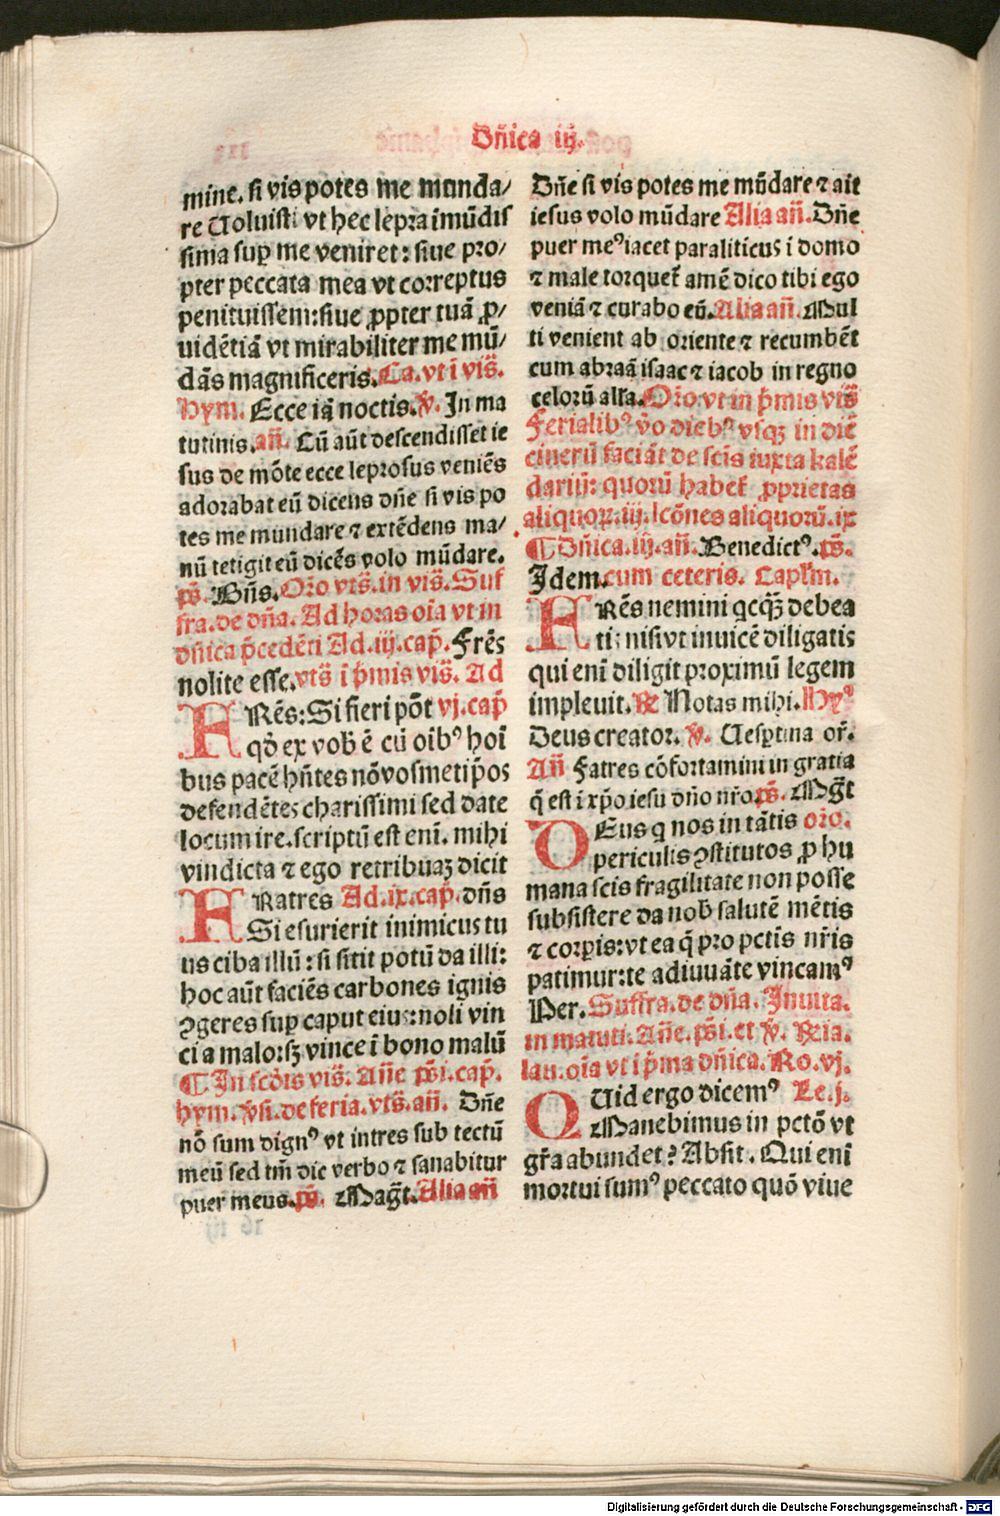 Dñica iij.
mine. si vis potes me munda/
re Uoluisti vt hec lepra imũdis
sima suꝑ me veniret: siue pro/
pter peccata mea vt correptus
penituissem: siue ꝓpter tuã ꝓ/
uidẽtiã vt mirabiliter me mũ/
dãs magnificeris. Ca. vt ĩ viš.
hym. Ecce iã noctis. ℣. In ma
tutinis. añ. Cũ aũt descendisset ie
sus de mõte ecce leprosus veniẽs
adorabat eũ dicens dñe si vis po
tes me mundare ⁊ extẽdens ma/
nũ tetigit eũ dicẽs volo mũdare.
pš. Bñs. Oro vtš. in viš. Suf
fra. de dña. Ad horas oĩa vt in
dñica p̃cedẽti Ad. iij. cap̃. Frẽs
nolite esse. vtš ĩ p̃mis viš. Ad
FRẽs: Si fieri põt vj. cap̃
qđ ex vob̃ ẽ cũ oibꝰ hoĩ
bus pacẽ hñtes nõ vosmetip̃os
defendẽtes charissimi sed date
locum ire. scriptũ est enĩ. mihi
vindicta ⁊ ego retribuaꝫ dicit
FRatres Ad. ix. cap̃. dñs
Si esurierit inimicus tu
us ciba illũ: si sitit potũ da illi:
hoc aũt faciẽs carbones ignis
ꝯgeres suꝑ caput eius: noli vin
ci a malo: sꝫ vince ĩ bono malũ
¶ In scđis viš. Añe pši. cap̃.
hym. ℣si. de feria. vtš. añ. Dñe
nõ sum dignꝰ vt intres sub tectũ
meũ sed tm̃ dic verbo ⁊ sanabitur
puer meus. pš. Mag̃t. Alia añ
Dñe si vis potes me mũdare ⁊ ait
iesus volo mũdare Alia añ. Dñe
puer meꝰ iacet paraliticus ĩ domo
⁊ male torquet̃ amẽ dico tibi ego
veniã ⁊ curabo eũ. Alia añ. Mul
ti venient ab oriente ⁊ recumbẽt
cum abraã isaac ⁊ iacob in regno
celorũ alla. Oro. vt in p̃mis viš
Ferialibꝰ vo diebꝰ vsqꝫ in diẽ
cinerũ faciãt de scĩs iuxta kalẽ
dariũ: quorũ habet̃ ꝓprietas
aliquoꝝ. iij. lcõnes aliquorũ. ix
¶ Dñica. iij. añ. Benedictꝰ. pš.
Idem. cum ceteris. Caplm̃.
FRẽs nemini qcqꝫ debea
tis nisi vt inuicẽ diligatis
qui enĩ diligit proximũ legem
impleuit. ℞ Notas mihi. Hyꝰ
Deus creator. ℣. Uesꝑtina or̃.
Añ Fatres cõfortamini in gratia
q̃ est ĩ xp̃o iesu dño nr̃o. pš. Mg̃t
DEus q nos in tãtis oro.
periculis ꝯstitutos ꝓ hu
mana scis fragilitate non posse
subsistere da nob̃ salutẽ mẽtis
⁊ corꝑis: vt ea q̃ pro pctĩs nr̃is
patimur: te adiuuãte vincamꝰ
Per. Suffra. de dña. Inuita.
in matuti. Añe. pši. et ℣. ℞ia.
lau. oĩa vt ĩ p̃ma dñica. Ro. vj.
QUid ergo dicemꝰ Le. j.
Manebimus in pctõ vt
gr̃a abundet? Absit. Qui enĩ
mortui sumꝰ peccato quõ viue
Digitalisierung gefördert durch die Deutsche Forschungsgemeinschaft - DFG